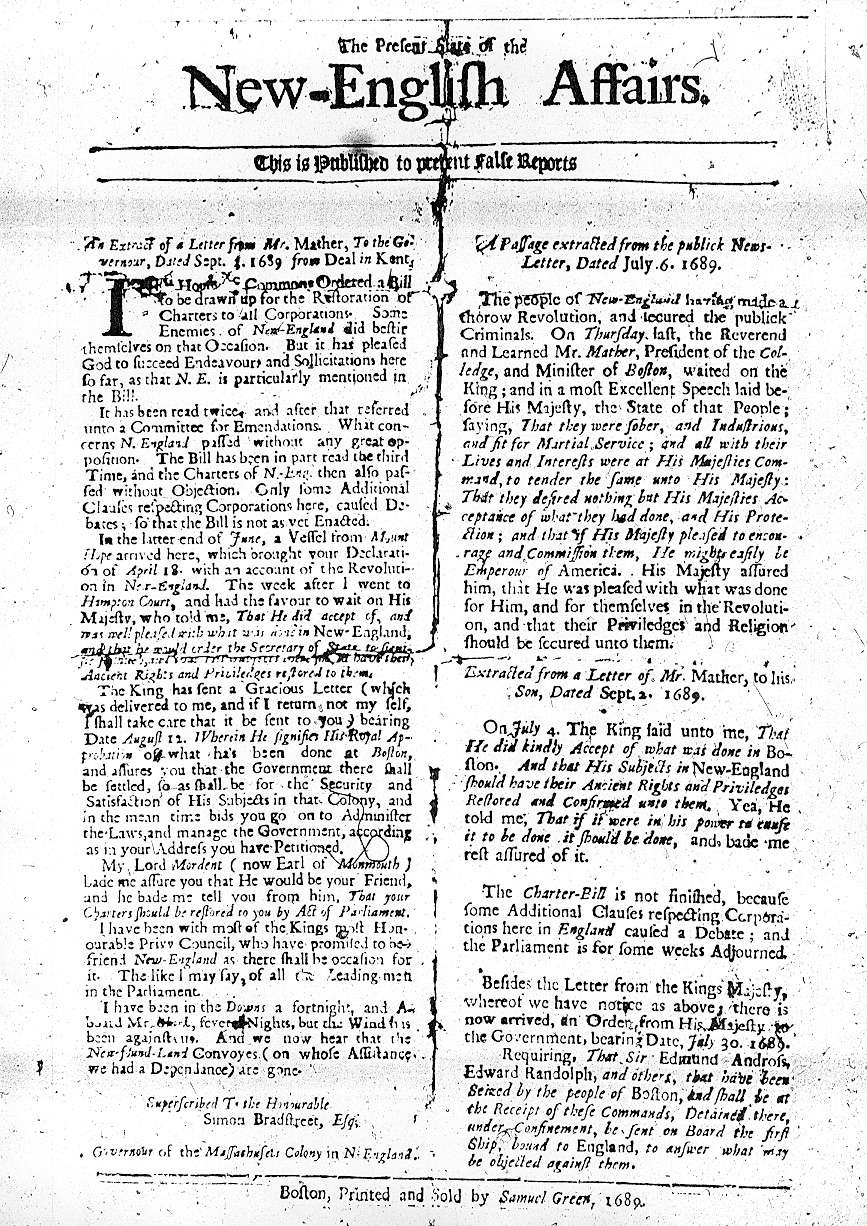 The Preſent State of the
New-Engliſh Affairs.
This is Publiſhed to prevent Falſe Reports
An Extract of a Letter from Mr. Mather, To the Go-
vernour, Dated Sept. 3. 1689 from Deal in Kent,
Houſe Commons Ordered a Bill
to be drawn up for the Reſtoration of
Charters to all Corporations. Some
Enemies of New-England did beſtir
themſelves on that Occaſion. But it has pleaſed
God to ſucceed Endeavours and Sollicitations here
ſo far, as that N. E. is particularly mentioned in
the Bill.
It has been read twice, and after that referred
unto a Committee for Emendations. What con-
cerns N. England paſſed without any great op-
poſition. The Bill has been in part read the third
Time, and the Charters of N. Eng. then alſo paſ-
ſed without Objection. Only ſome Additional
Clauſes reſpecting Corporations here, cauſed De-
bates; ſo that the Bill is not as yet Enacted.
In the latter end of June, a Veſſel from Mount
Hope arrived here, which brought your Declarati-
on of April 18. with an account of the Revoluti-
on in New-England. The week after I went to
Hampton Court, and had the favour to wait on His
Majeſty, who told me, That He did accept of, and
was well pleaſed with what was done in New-England,
and that he would order the Secretary of State to ſigni-
have their
Ancient Rights and Priviledges reſtored to them.
The King has ſent a Gracious Letter (which
was delivered to me, and if I return not my ſelf,
I ſhall take care that it be ſent to you) bearing
Date Auguſt 12. Wherein He ſignifies His Royal Ap-
probation of what ha's been done at Boſton,
and aſſures you that the Government there ſhall
be ſettled, ſo as ſhall be for the Security and
Satisfaction of His Subjects in that Colony, and
in the mean time bids you go on to Adminiſter
the Laws, and manage the Government, according
as in your Addreſs you have Petitioned.
My Lord Mordent (now Earl of Monmouth)
bade me aſſure you that He would be your Friend,
and he bade me tell you from him, That your
Charters ſhould be reſtored to you by Act of Parliament.
I have been with moſt of the Kings moſt Hon-
ourable Privy Council, who have promiſed to be-
friend New-England as there ſhall be occaſion for
it. The like I may ſay, of all the Leading-men
in the Parliament.
I have been in the Downs a fortnight, and A-
board Mr. ſeveral Nights, but the Wind has
been againſt us. And we now hear that the
New-found-Land Convoyes (on whoſe Aſſiſtance
we had a Dependance) are gone.
Superſcribed To the Honourable
Simon Bradſtreet, Eſq;
Governour of the Maſſathuſets Colony in N. England.
A Paſſage extracted from the publick News-
Letter, Dated July. 6. 1689.
The people of New-England having made a
thorow Revolution, and ſecured the publick
Criminals. On Thurſday laſt, the Reverend
and Learned Mr. Mather, Preſident of the Col-
ledge, and Miniſter of Boſton, waited on the
King; and in a moſt Excellent Speech laid be-
fore His Majeſty, the State of that People;
ſaying, That they were ſober, and Induſtrious,
and fit for Martial Service; and all with their
Lives and Intereſts were at His Majeſties Com-
mand, to tender the ſame unto His Majeſty:
That they deſired nothing but His Majeſties Ac-
ceptance of what they had done, and His Prote-
ction; and that if His Majeſty pleaſed to encou-
rage and Commiſſion them, He might eaſily be
Emperour of America. His Majeſty aſſured
him, that He was pleaſed with what was done
for Him, and for themſelves in the Revoluti-
on, and that their Priviledges and Religion
ſhould be ſecured unto them.
Extracted from a Letter of Mr. Mather, to his
Son, Dated Sept. 2. 1689.
On July 4. The King ſaid unto me, That
He did kindly Accept of what was done in Bo-
ſton. And that His Subjects in New-England
ſhould have their Ancient Rights and Priviledges
Reſtored and Confirmed unto them. Yea, He
told me, That if it were in his power to cauſe
it to be done it ſhould be done, and bade me
reſt aſſured of it.
The Charter-Bill is not finiſhed, becauſe
ſome Additional Clauſes reſpecting Corpora-
tions here in England cauſed a Debate; and
the Parliament is for ſome weeks Adjourned.
Beſides the Letter from the Kings Majeſty,
whereof we have notice as above, there is
now arrived, an Order from His Majeſty to
the Government, bearing Date, July 30. 1689.
Requiring, That Sir Edmund Androſs,
Edward Randolph, and others, that have been
Seized by the people of Boſton, and ſhall be at
the Receipt of theſe Commands, Detained there,
under Confinement, be ſent on Board the firſt
Ship, bound to England, to anſwer what may
be objected againſt them.
Boſton, Printed and Sold by Samuel Green, 1689.